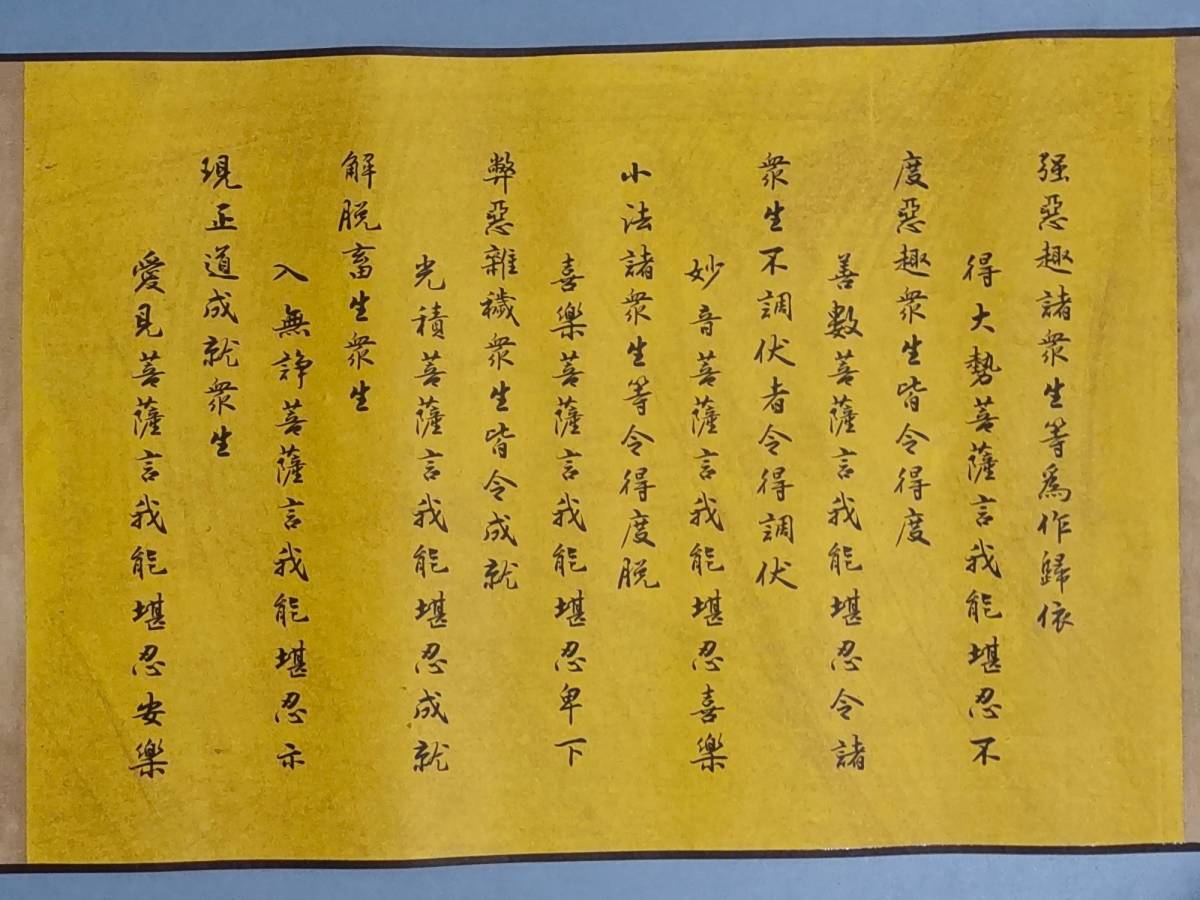 强惡趣諸衆生等為作歸依
得大勢菩薩言我能堪忍不
度惡趣衆生皆令得度
善數菩薩言我能堪忍令諸
衆生不調伏者令得調伏
妙音菩薩言我能堪忍喜樂
小法諸衆生等令得度脱
喜樂菩薩言我能堪忍卑下
弊惡雜穢衆生皆令成就
光積菩薩言我能堪忍成就
解脱畜生衆生
入無諍菩薩言我能堪忍示
現正道成就衆生
愛見菩薩言我能堪忍安樂